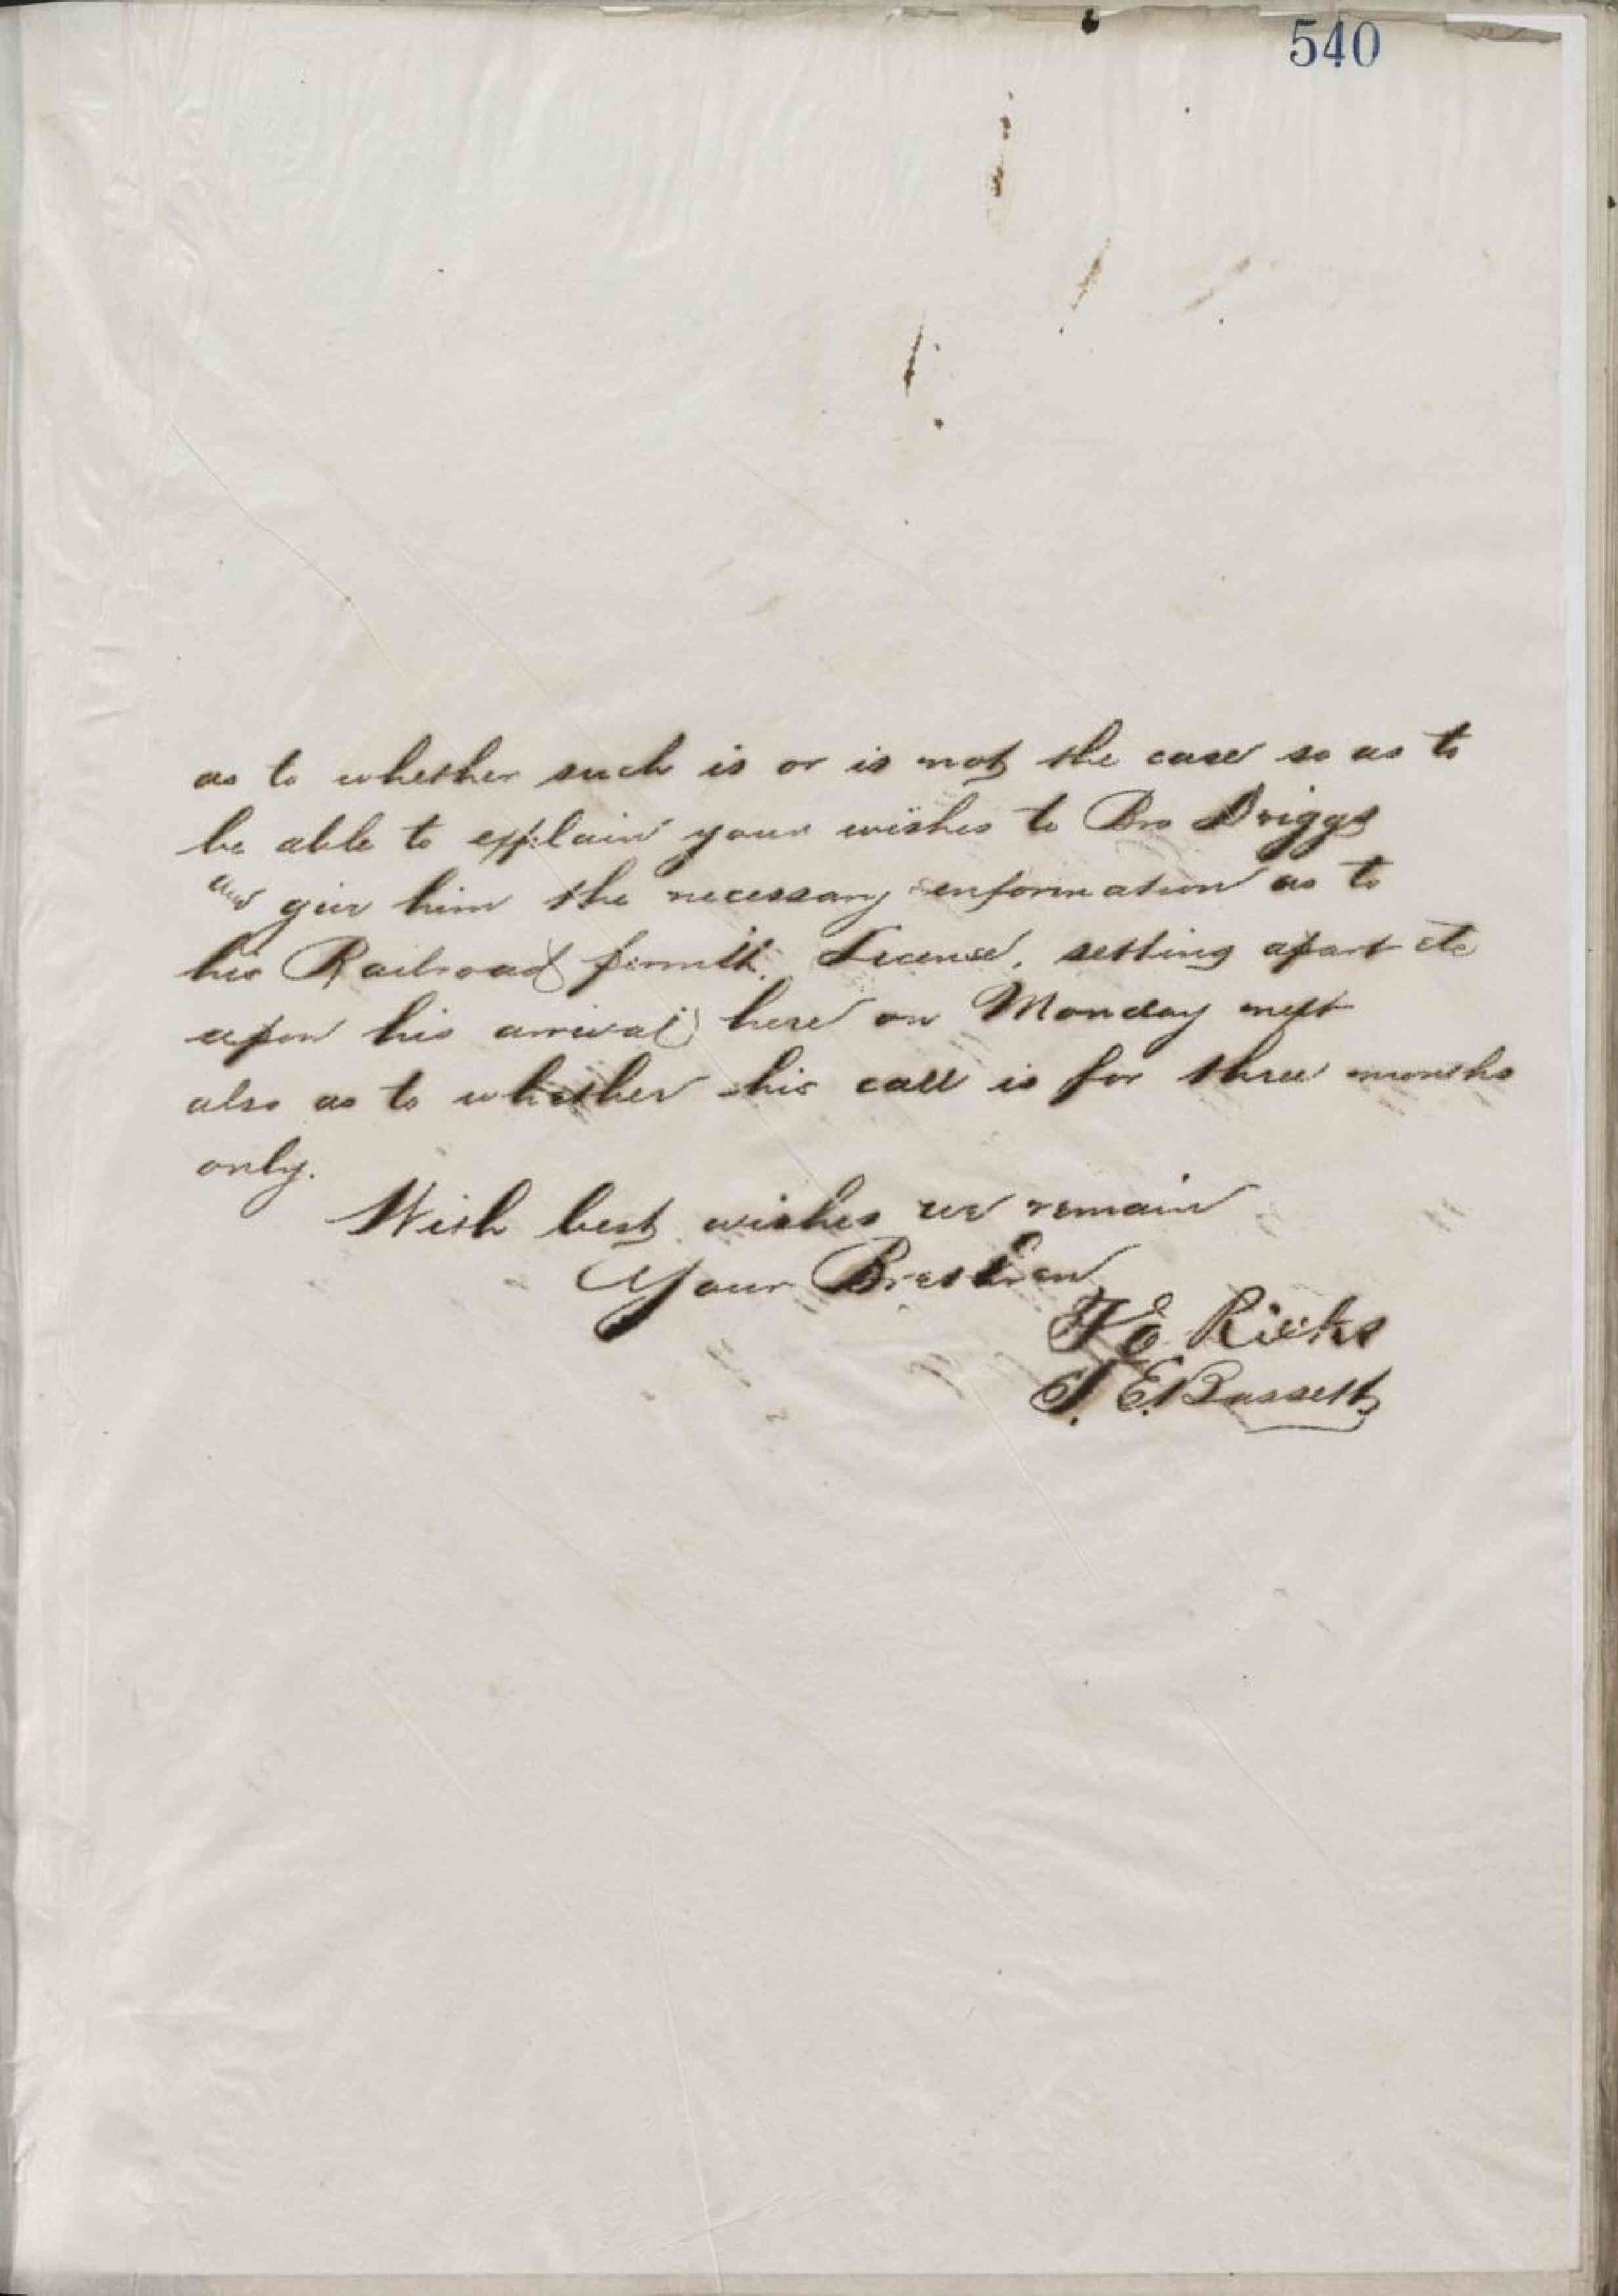 540
as to whether such is or is not the case so as to
be able to explain your wishes to Bro Driggs
and give him the necessary information as to
his Railroad permit, License, setting apart etc
upon his arrival here on Monday next
also as to whether his call is for three months
only.
With best wishes we remain
Your Brethren
T E Ricks
J. E. Bassett